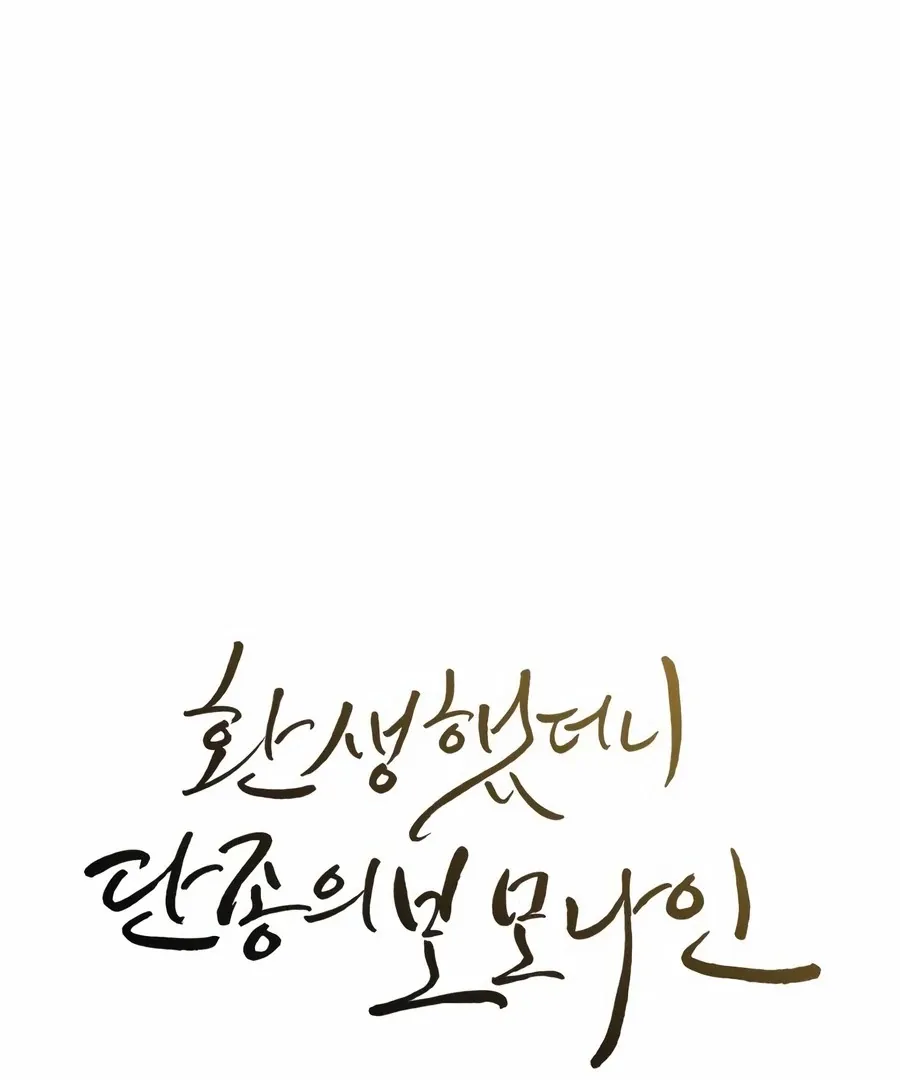 환생했더니
단종의 보모나인